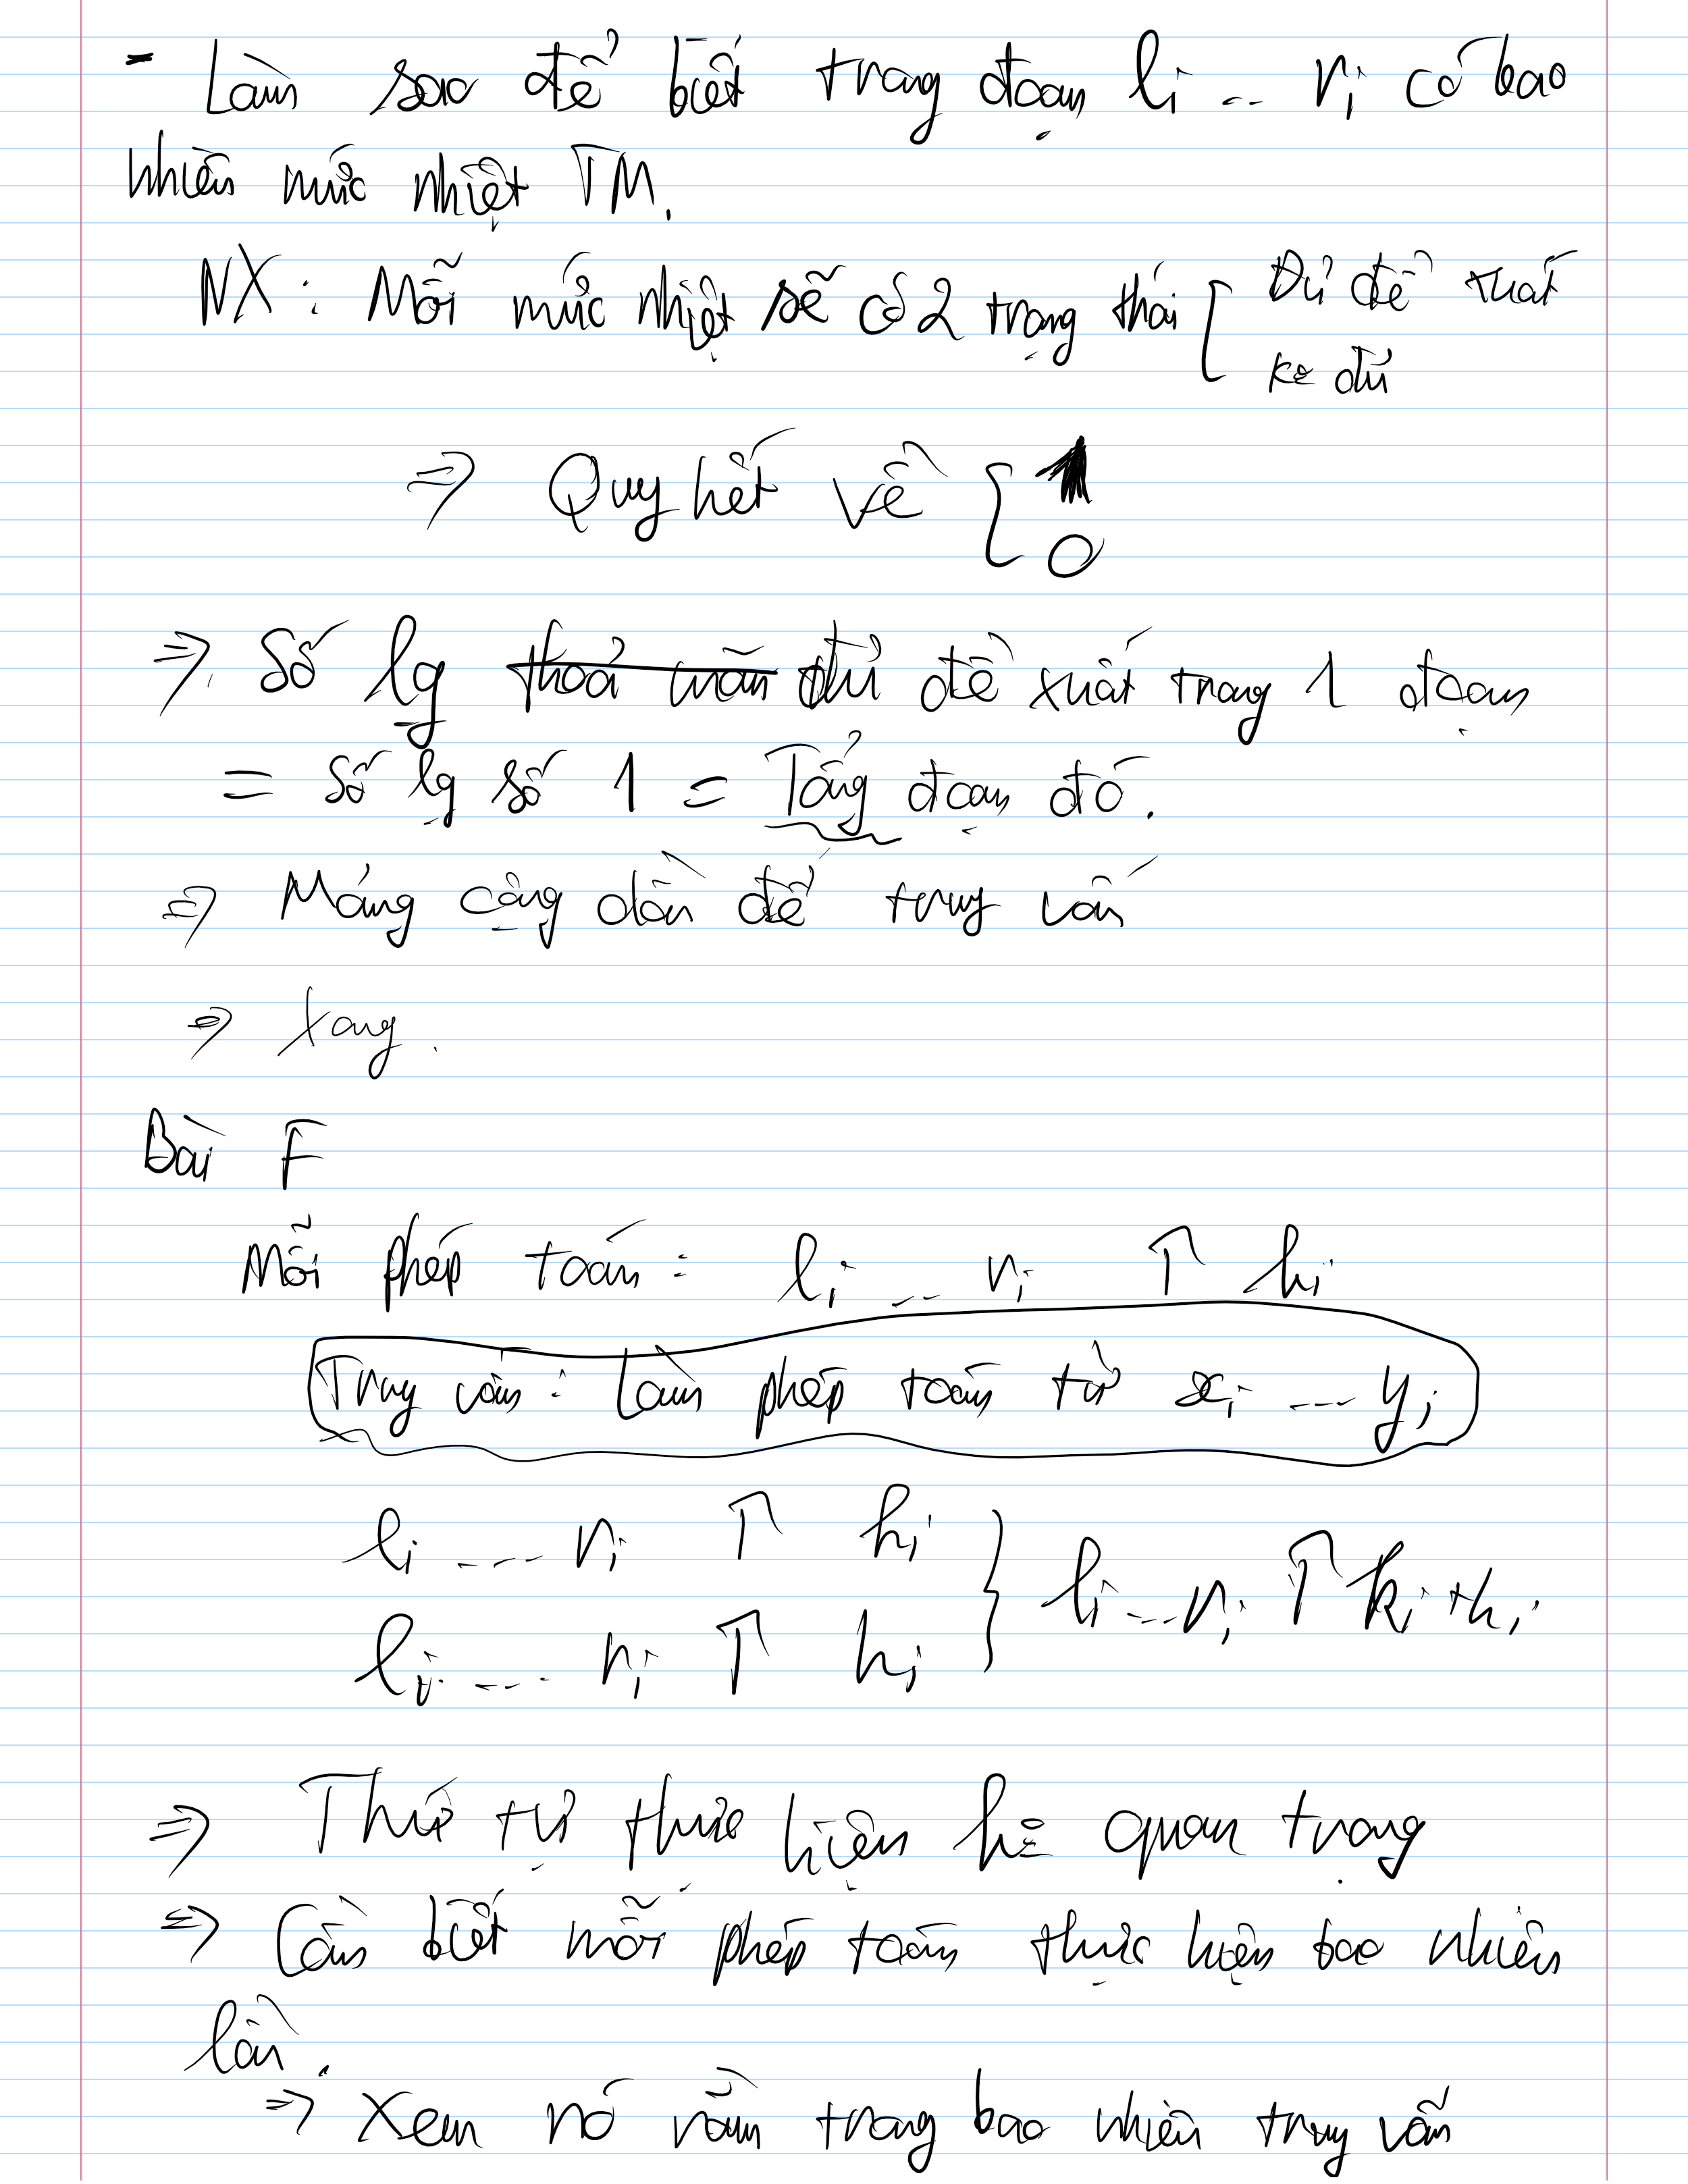 - Làm sao để biết trong đoạn li ... ri có bao
nhiêu mức nhiệt TM.
NX: Mỗi mức nhiệt sẽ có 2 trạng thái [ Đủ đề xuất
ko đủ
=> Quy hết về { 1
0
=> Số lg thoả mãn đủ đề xuất trong 1 đoạn
= số lg số 1 = Tổng đoạn đó.
=> Mảng cộng dồn để truy vấn
=> Xong.
Bài F
Mỗi phép toán: li ... ri ↑ hi
Truy vấn: Làm phép toán từ xi ... yi
li ... ri ↑ hi
li ... ri ↑ hi } li ... ri ↑ ki + hi
=> Thứ tự thực hiện ko quan trọng
=> Cần biết mỗi phép toán thực hiện bao nhiêu
lần.
=> Xem nó nằm trong bao nhiêu truy vấn